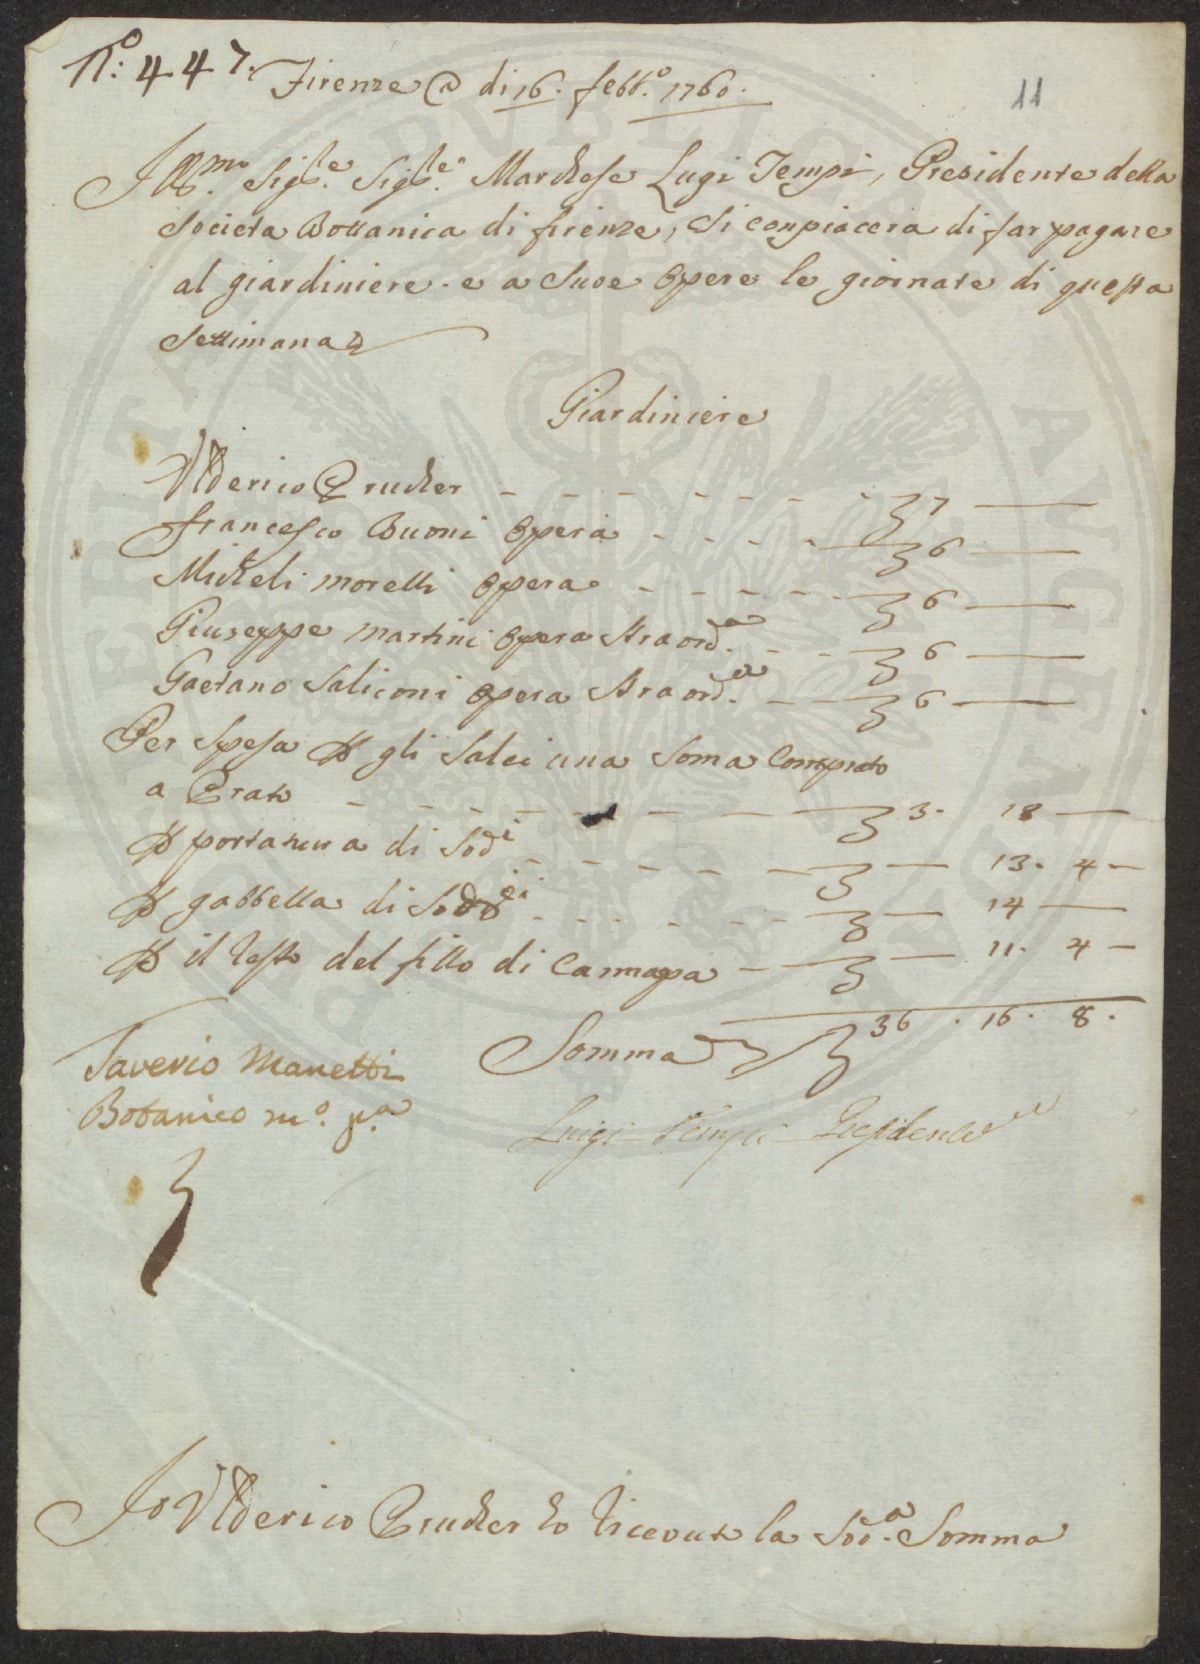 N.º 447. Firenze @ di 16. febb.º 1760.
11
Ill.mo Sig.re Sig.re Marchese Lugi Tempi, Presidente della
Societa Bottanica di firenze, Si conpiacera di far pagare
al giardiniere e a Sue Opere le giornate di questa
Settimana
Giardiniere
Ulderico Prucher - - - - - - - - 7 —
francesco Buoni Opera - - - - 6 —
Micheli Morelli Opera - - - - - 6 —
Giuseppe Martini Opera Straord.a - - 6 —
Gaetano Saliconi Opera Straord.a - - 6 —
Per Spesa p gli Salci una Soma Comprato
a Prato - - - - - - - - 3. 18 —
p portatura di Sod.i - - - - - — 13. 4 —
p gabbella di Sodd.i - - - - - - — 14 —
p il resto del fillo di Cannapa - — 11. 4 —
Somma 36. 16. 8.
Saverio Manetti
Botanico m.º p.a
Luigi Tempi Presidente
Io Ulderico Prucher ho riceuto la Sod.a Somma